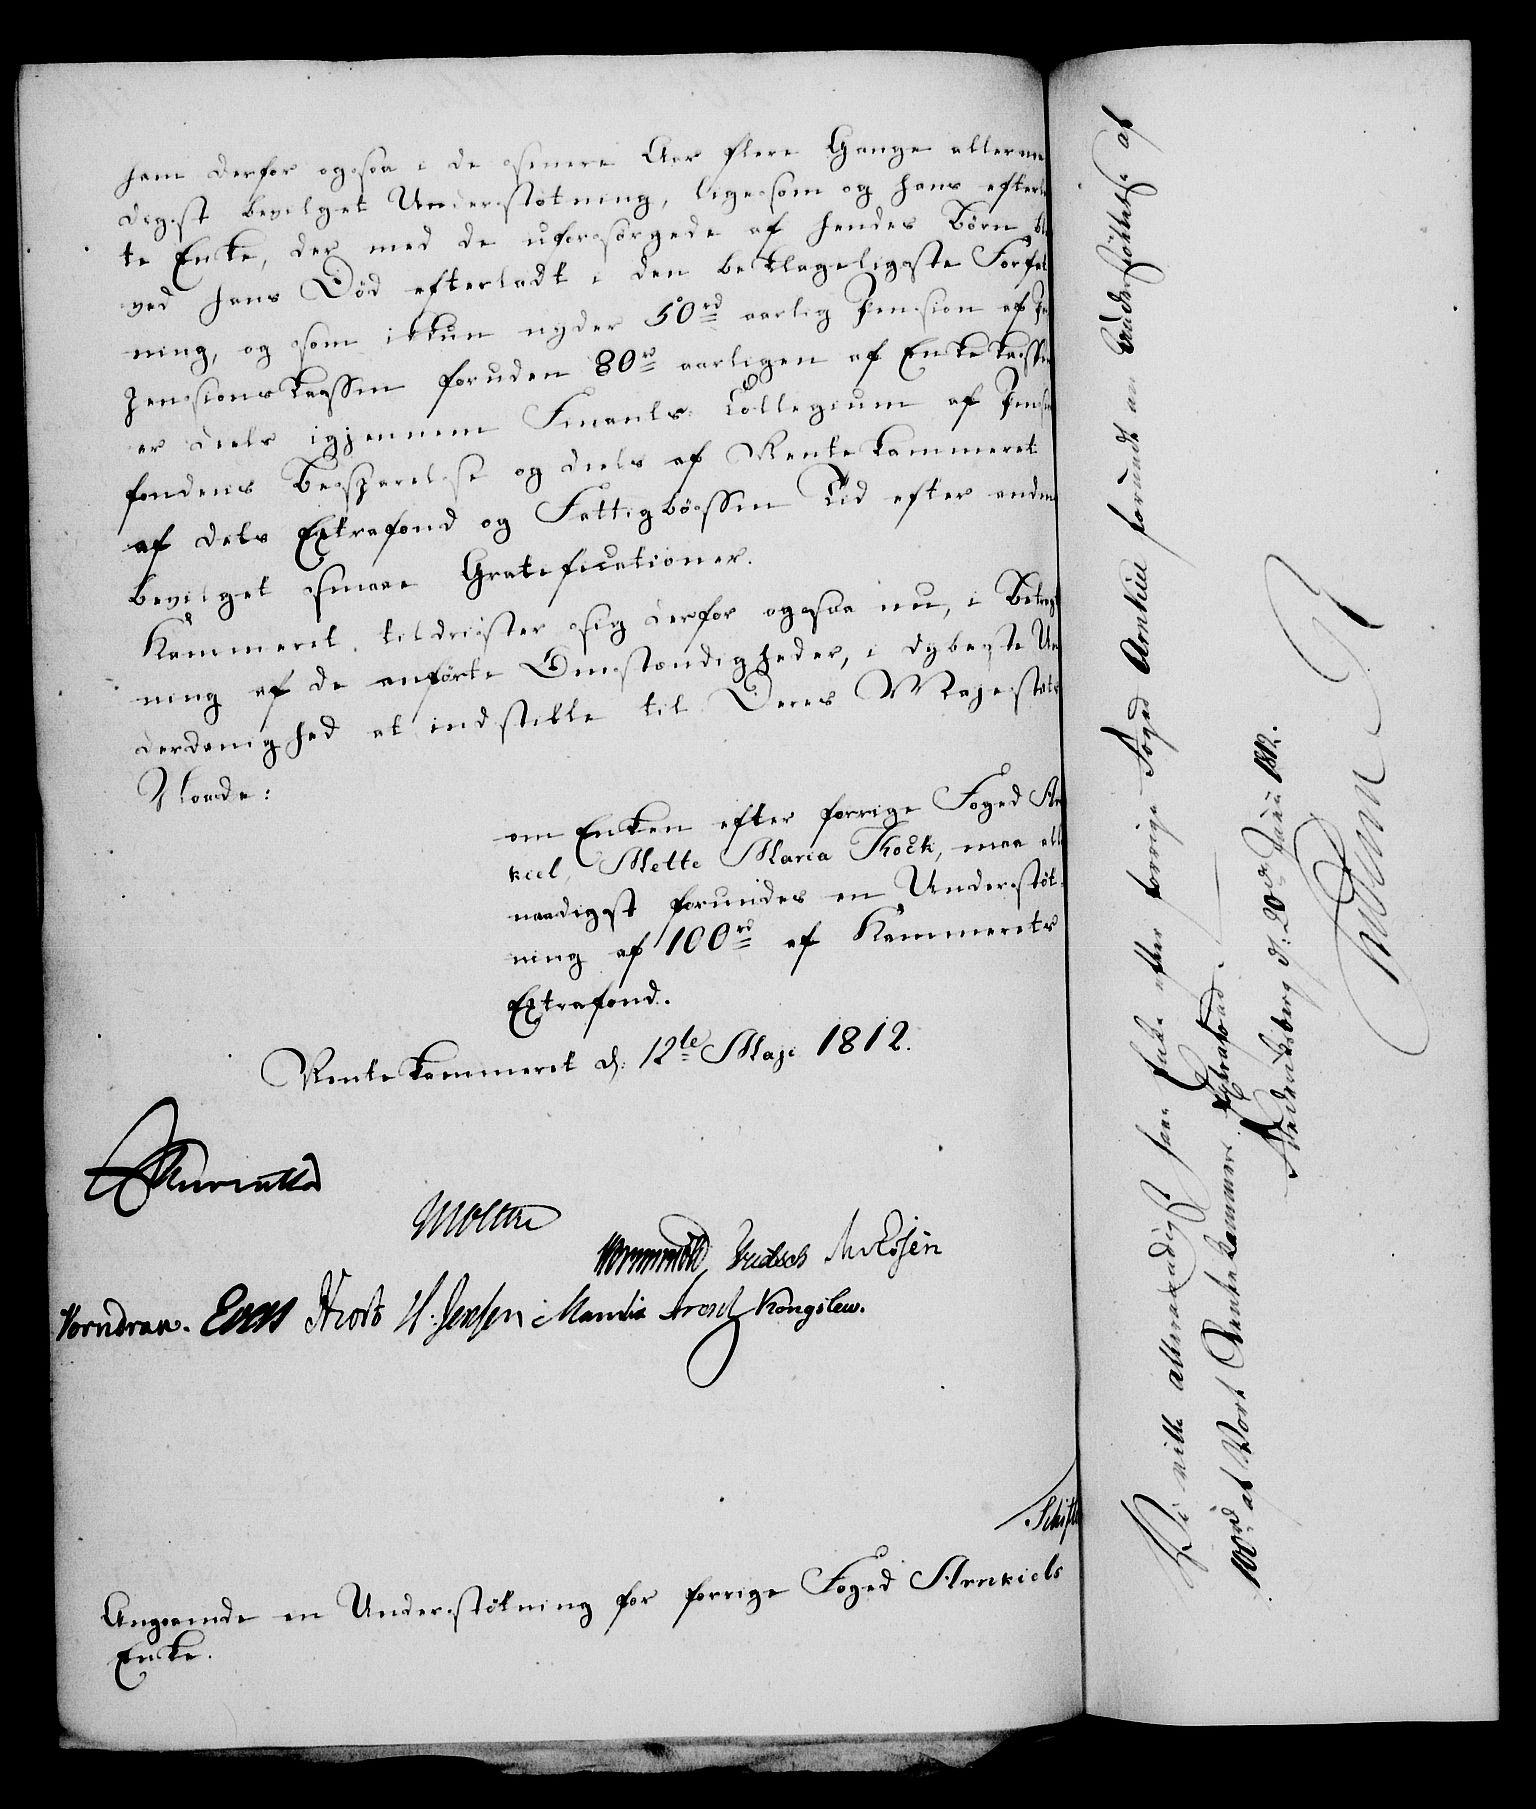 ham derfor ogsaa i de senere Aar flere Gange allernaa
digst bevilget Understøtning, ligesom og hans efterla
te Enke, der med de uforsørgede af hendes Børn bl
ved hans Død efterladt i den beklageligste Forfat
ning, og som ikkun nyder 50 rd aarlig Pension af
Pensionskassen foruden 80 rd aarligen af Enkekassen
er deels igjennem Finants Collegium af Pensions
fondens Besparelse og deels af Rentekammeret
af dets Extrafond og Fattigbøssen Tid efter anden
bevilget smaae Gratificationer.
Kammeret tildrister sig derfor ogsaa nu, i Betragt
ning af de anførte Omstændigheder, i dybeste Un
derdanighed at indstille til Deres Majestæts
Naade:
om Enken efter forrige Foged Ar
kiel, Mette Maria Kock, maa aller
naadigst forundes en Understøt-
ning af 100 rd af Kammerets
Extrafond.
Rentekammeret d. 12te Maji 1812.
Moltke
Wormskiold
Vorndran. Hiort H. Jensen Manthe Kongslew.
Schifte
Angaaende en Understøtning for forrige Foged Arnkiels
Enke.
Vi ville allernaadigst have Enke efter forrige Foged Arnkiel forundt en Understøttelse af
100 rd af Vort Rentekammers Extrafond.
Frederiksberg d: 20de Junii 1812.
Frederik R